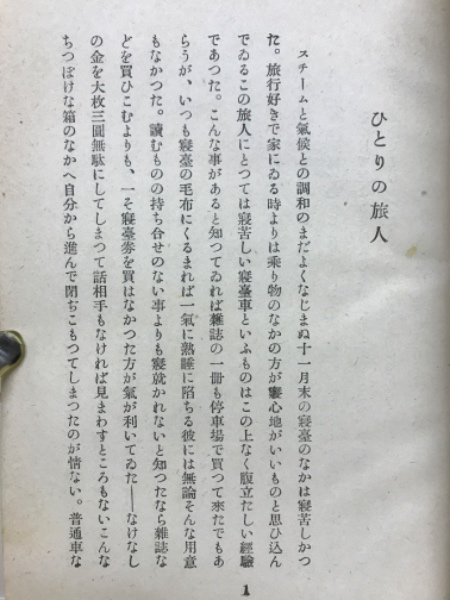 ひとりの旅人
スチームと氣候との調和のまだよくなじまぬ十一月末の寢臺のなかは寢苦しかつ
た。旅行好きで家にゐる時よりは乘り物のなかの方が寢心地がいいものと思ひ込ん
でゐるこの旅人にとつては寢苦しい寢臺車といふものはこの上なく腹立たしい經驗
であつた。こんな事があると知つてゐれば雜誌の一册も停車場で買つて來たでもあ
らうが、いつも寢臺の毛布にくるまれば一氣に熟睡に陷ちる彼には無論そんな用意
もなかつた。讀むものの持ち合せのない事よりも寢就かれないと知つたなら雜誌な
どを買ひこむよりも、一そ寢臺劵を買はなかつた方が氣が利いてゐた――なけなし
の金を大枚三圓無駄にしてしまつて話相手もなければ見まわすところもないこんな
ちつぽけな箱のなかへ自分から進んで閉ぢこもつてしまつたのが情ない。普通車な
1